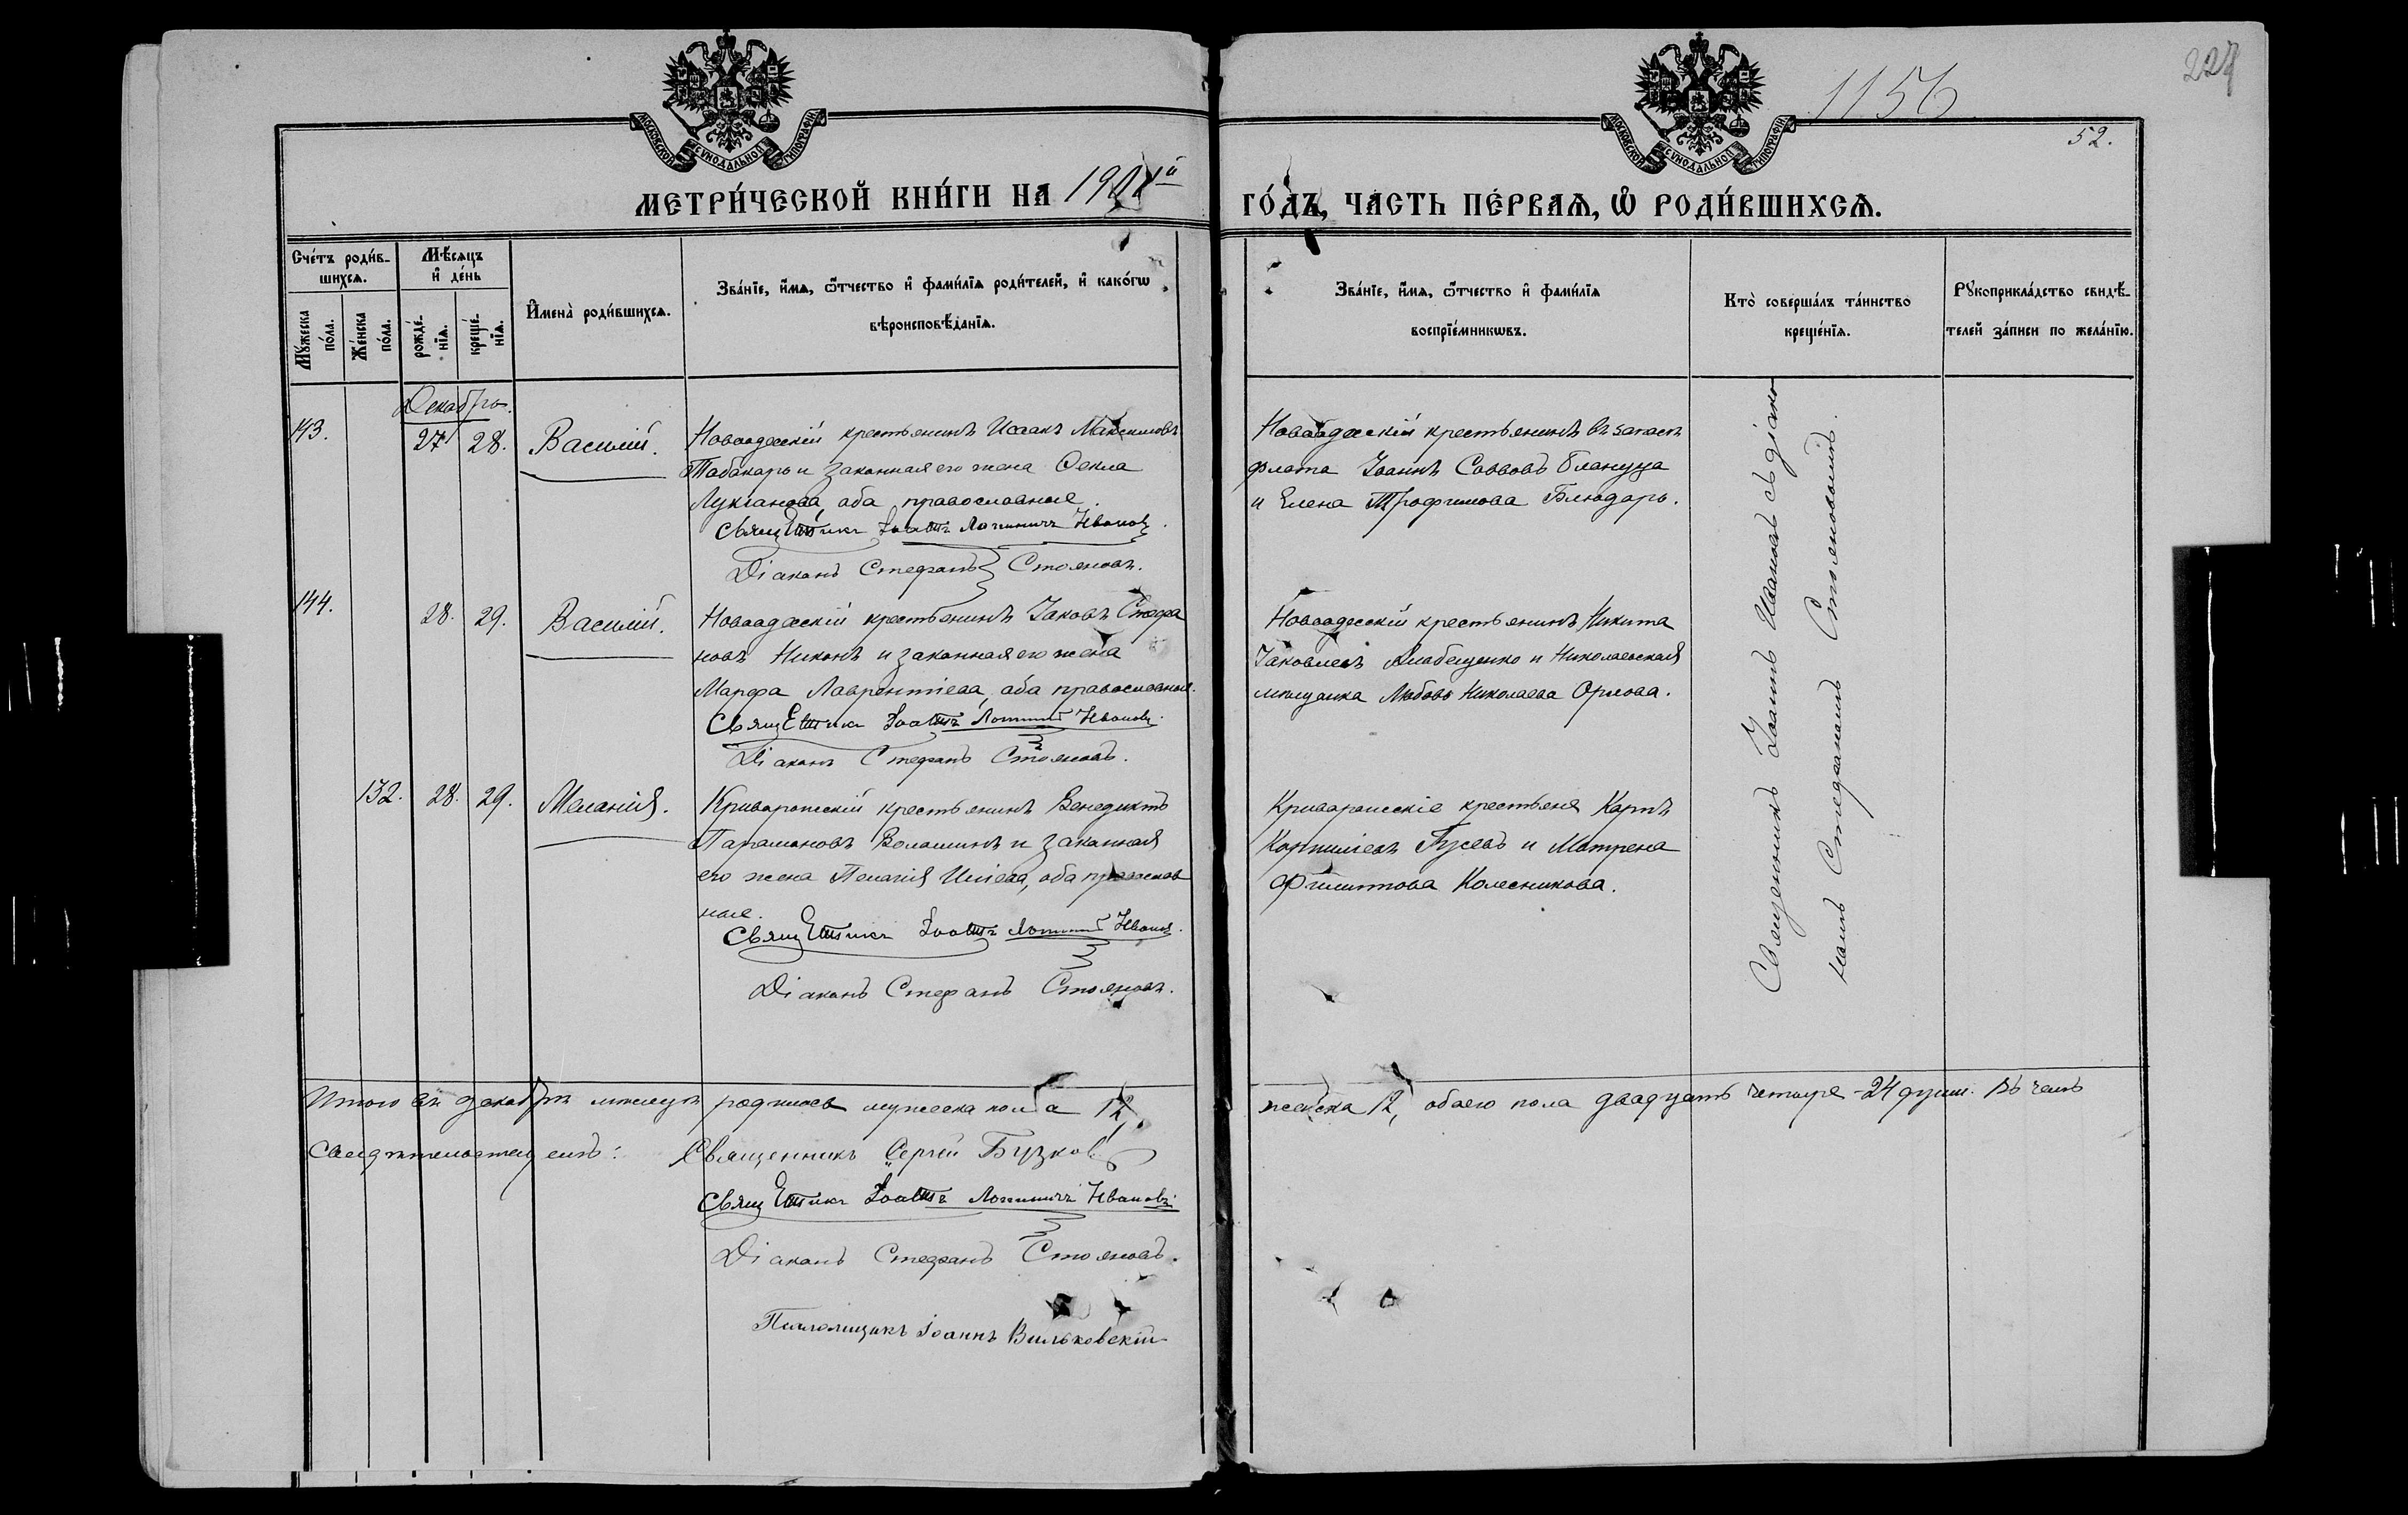 1156
224
52.
МОСКОВСКОЙ СѴНОДАЛЬНОЙ ТИПОГРАФІИ
МОСКОВСКОЙ СѴНОДАЛЬНОЙ ТИПОГРАФІИ
МЕТРИ́ЧЕСКОЙ КНИ́ГИ НА 190 й
ГО́ДЪ, ЧАСТЬ ПЕ́РВАѦ, Ѡ РОДИ́ВШИХСѦ.
Сче́тъ роди́в-
шихсѧ.
Мꙋ́жеска по́ла.
Же́нска по́ла.
Мѣ́сѧцъ
и де́нь
рожде́-нїѧ.
креще́-нїѧ.
Имена̀ роди́вшихсѧ.
Зва́нїе, и́мѧ, ѻ҆́тчество и҆ фами́лїѧ роди́телей, и҆ како́гѡ
вѣроисповѣ́данїѧ.
Зва́нїе, и́мѧ, ѻ҆́тчество и҆ фами́лїѧ
воспрїе́мникѡвъ.
Кто̀ соверша́лъ та́инство
креще́нїѧ.
Рꙋкоприкла́дство свидѣ́-
телей за́писи по жела́нїю.
Декабрь.
143. 27 28. Василій.
Новоодесскій крестьянинъ Исаакъ Максимовъ
Табакарь и законная его жена Фекла
Лукіанова, оба православные.
Священникъ Іоаннъ Логиничъ Ивановъ.
Діаконъ Стефанъ Стояновъ.
Новоодесскій крестьянинъ въ запасѣ
флота Іоаннъ Саввовъ
и Елена Трофимова Блюдарь.
144. 28. 29. Василій.
Новоодесскій крестьянинъ Іаковъ Стефа
новъ Никонъ и законная его жена
Марфа Лаврентіева, оба православные.
Священникъ Іоаннъ Логиничъ Ивановъ.
Діаконъ Стефанъ Стояновъ.
Новоодесскій крестьянинъ Никита
Іаковлевъ и Николаевская
мѣщанка Любовь Николаева Орлова.
132. 28. 29. Меланія.
Криворожскій крестьянинъ Венедиктъ
Парамоновъ Волошинъ и законная
его жена Пелагія Иліева, оба православ
ные.
Священникъ Іоаннъ Логиничъ Ивановъ.
Діаконъ Стефанъ Стояновъ.
Криворожскіе крестьяне Карпъ
Корниліевъ Гусевъ и Матрена
Филиппова Колесникова.
Священникъ Іоаннъ Ивановъ съ діако
номъ Стефаномъ Стояновымъ.
Итого въ декабрѣ мѣсяцѣ родилось мужеска пола 12,
женска 12, обоего пола двадцать четыре - 24 души. Въ чемъ
свидѣтельствуемъ: Священникъ Сергій Бузковъ
Священникъ Іоаннъ Логиничъ Ивановъ
Діаконъ Стефанъ Стояновъ.
Псаломщикъ Іоаннъ Вильковскій